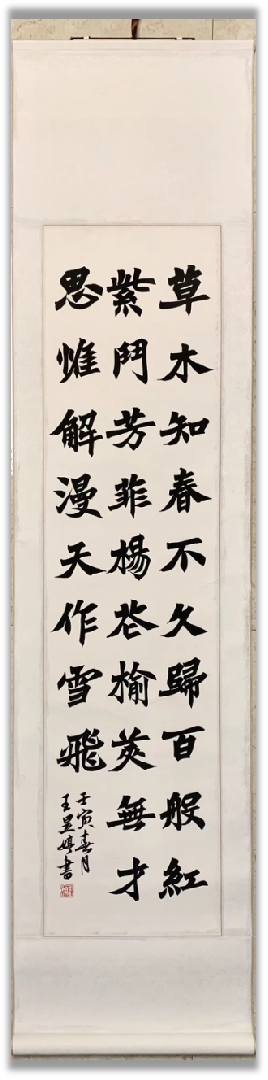 草木知春不久歸百般紅
紫鬥芳菲楊花榆莢無才
思惟解漫天作雪飛
壬寅春月
王昱婷書